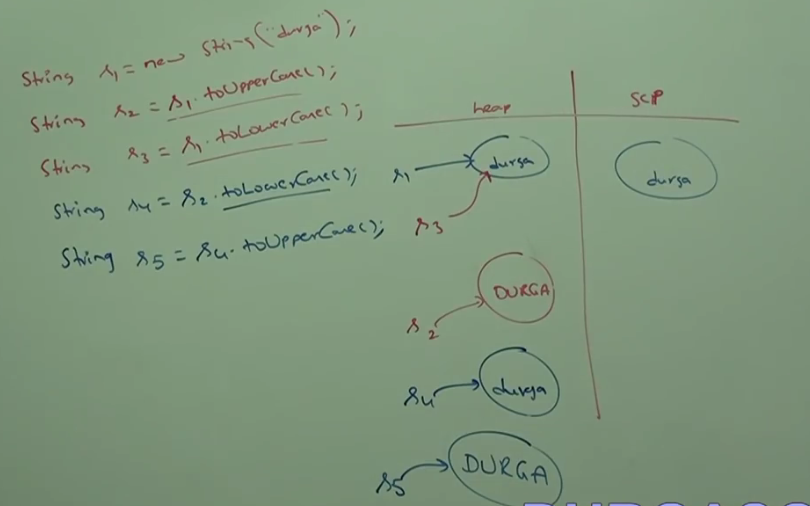 String s1 = new String("durga");
String s2 = s1.toUpperCase();
String s3 = s1.toLowerCase();
String s4 = s2.toLowerCase();
String s5 = s4.toUpperCase();
heap
SCP
s1
durga
durga
s3
s2
DURGA
s4
durga
s5
DURGA